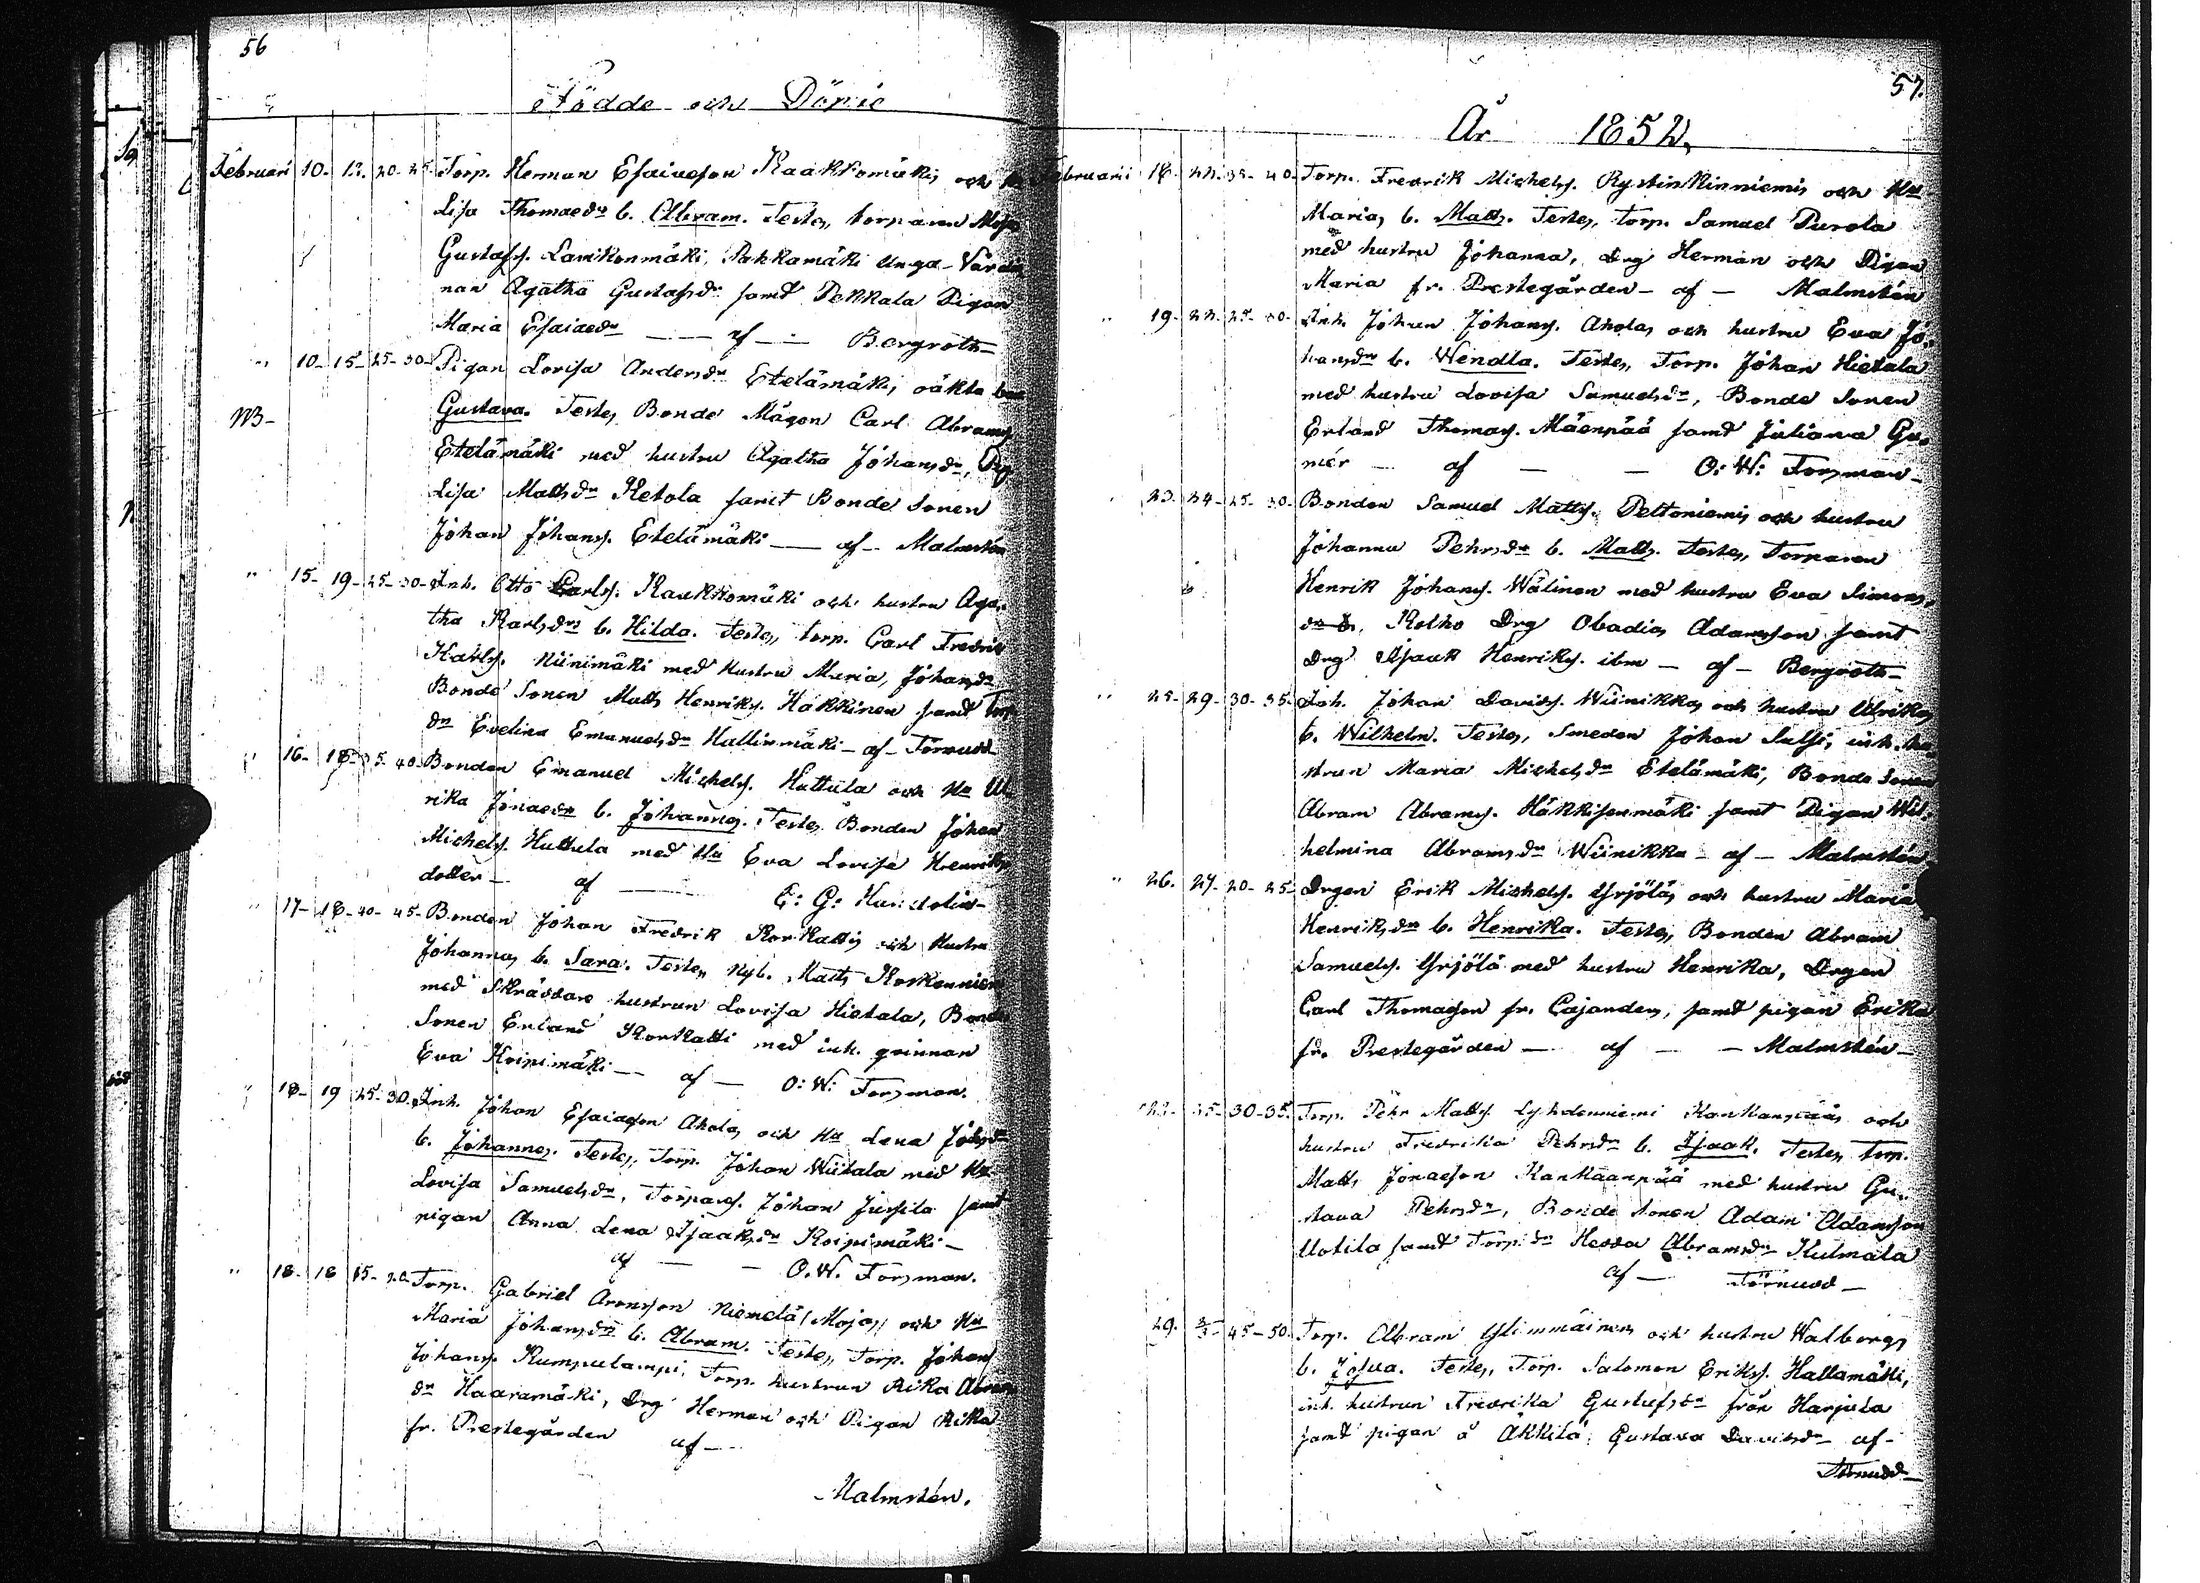 56
Födde och Döpte
Februari 10. 12. 20-25. Torp. Herman Esaiaeson Kaakkomäki, och
Lisa Thomaedr b. Abram. Testes, torparen
Gustafs. Lamikonmäki, Pakkamäki unga Värdin
nan Agatha Gustafsdr samt Pekkala Pigan
Maria Esaiaedr — af — Bergroth
" 10- 15- 25-30- Pigan Lovisa Andersdr Etelämäki, oäkta
NB- Gustava. Testes, Bonde Mågen Carl Abrams.
Etelämäki med hustru Agatha Johansdr,
Lisa Mattsdr Ketola samt Bonde Sonen
Johan Johans. Etelämäki — af — Malmstén
" 15- 19- 25-30- Inh. Otto Carls. Kaukkomäki och hustru Aga-
tha Karlsdr b. Hilda. Testes, torp. Carl Fredrik
Karls. Niinimäki med hustru Maria, Johansdr
Bonde Sonen Matts Henriks. Häkkinen samt Torp
dr Evelina Emanuelsdr Hallinmäki - af - Törnudd
" 16- 18- 35-40- Bonden Emanuel Michels. Huttula och Hu Ul
rika Jonaedr b. Johannes. Testes, Bonden Johan
Michels. Huttula med Hu Eva Lovisa Henriks
dotter — af — E: G: Handolin
" 17- 18- 40-45- Bonden Johan Fredrik Korkatti, och Hustru
Johanna, b. Sara. Testes, Nyb. Matts Koskenniemi
med Skräddare hustrun Lovisa Hietala, Bonde
Sonen Erland Korkatti med inh. qvinnan
Eva Koipimäki — af — O: W: Forsman.
" 18- 19 25-30. Inh. Johan Esaiaeson Ahola, och Hu Lena Johsdr
b. Johannes. Testes, Torp. Johan Wiitala med Hu
Lovisa Samuelsdr, Torpares. Johan Jussila samt
pigan Anna Lena Isaaksdr Koipimäki —
af — — O. W. Forsman.
" 18- 18 15-20. Torp. Gabriel Aronsson Niemelä (Moja), och Hu
Maria Johansdr b. Abram. Testes, Torp. Johan
Johans. Kumpulampi, Torp. hustrun Rika Abrams
dr Haaramäki, Drg Herman och Pigan Rika
fr. Prestegården af —
Malmstén.
57.
År 1852.
Februarii 18. 22. 35-40. Torp. Fredrik Michels. Rystinkinniemi, och Hu
Maria, b. Matts. Testes, torp. Samuel Purola
med hustru Johanna, Drg Herman och Pigan
Maria fr. Prestegården — af — Malmstén
" 19- 22- 25-30- Inh. Johan Johans. Ahola, och hustru Eva Jo-
hansdr b. Wendla. Testes, Torp. Johan Hietala
med hustru Lovisa Samuelsdr, Bonde Sonen
Erland Thomas. Mäenpää samt Juliana
mér — af — — O: W: Forsman
23. 24- 25-30- Bonden Samuel Matts. Peltoniemi, och hustru
Johanna Pehrsdr b. Matts. Testes, Torparen
Henrik Johans. Wälinen med hustru Eva Simons.
dr, Kotko Drg Obadias Adamsson samt
Drg Isaak Henriks. ibm — af — Bergroth
" 25- 29- 30-35. Inh. Johan Davids. Wiinikka, och hustru Ulrika,
b. Wilhelm. Testes, Smeden Johan Sulsi, inh. hu
strun Maria Michelsdr Etelämäki, Bonde Sonen
Abram Abrams. Häkkisenmäki samt Pigan Wil-
helmina Abramsdr Wiinikka — af — Malmstén
" 26. 27- 20-25- Drgen Erik Michels. Yrjölä, och hustru Maria
Henriksdr b. Henrika. Testes, Bonden Abram
Samuels. Yrjölä med hustru Henrika, Drgen
Carl Thomasson fr. Cajanders, samt pigan Erika
fr. Prestegården — af — — Malmstén —
30-35. Torp. Pehr Matts. Lyhdenniemi Kankaanpää, och
hustru Fredrika Pehrsdr b. Isaak. Testes, torp.
Matts Jonaeson Kankaanpää med hustru Gu-
stava Pehrsdr, Bonde sonen Adam Adamsson
Uotila samt Torp.dr Hedda Abramsdr Kulmala
af — Törnudd —
29. 2/3 45-50. Torp. Abram Ylimmäinen, och hustru Walborg,
b. Josua. Testes, Torp. Salomon Eriks. Hallamäki,
inh. hustrun Fredrika Gustafsdr från Harjula
samt pigan å Äkkilä, Gustava Davidsdr af —
Törnudd —